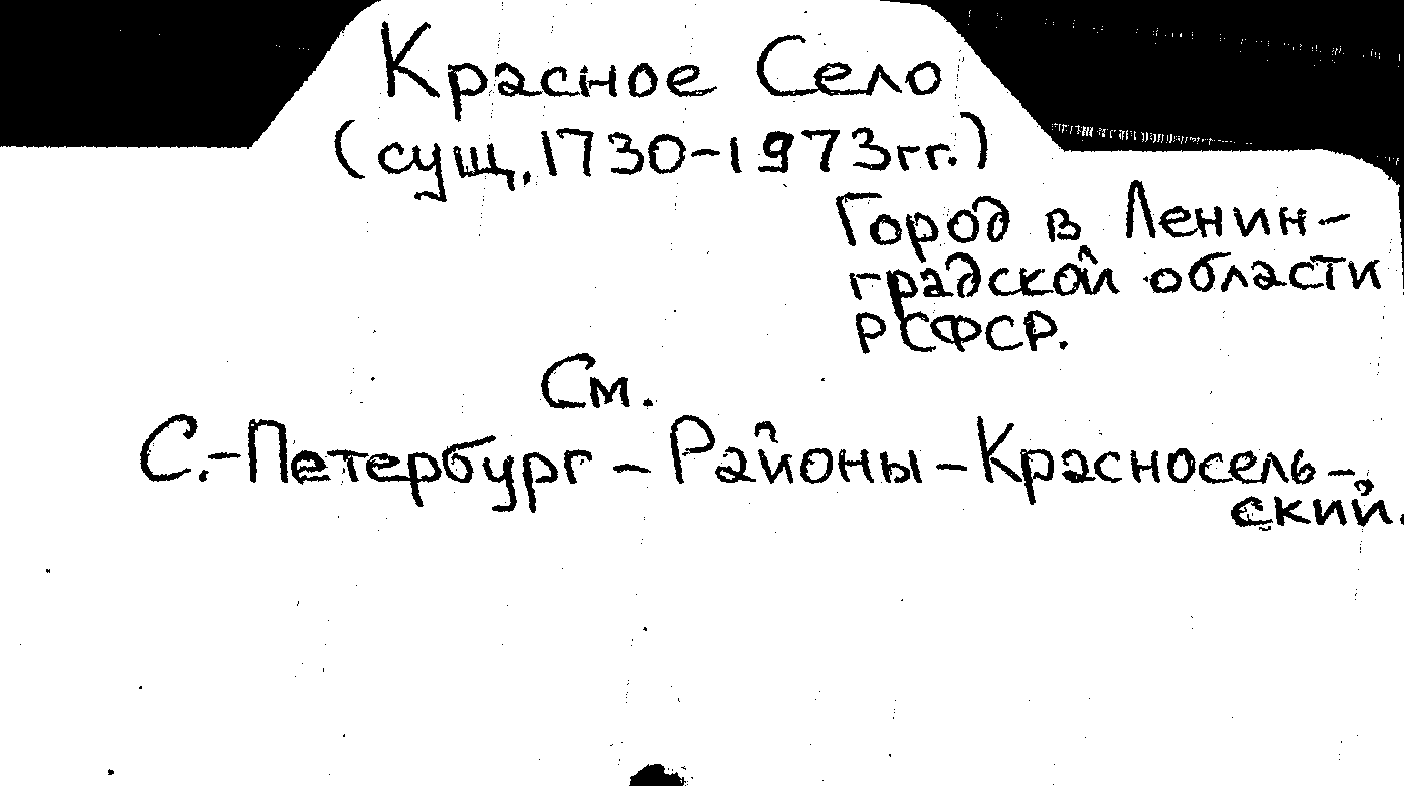 Красное Село
(сущ. 1730-1973гг.)
Город в Ленин-
градской области
РСФСР.
См.
С.-Петербург - Районы - Красносель-
ский.